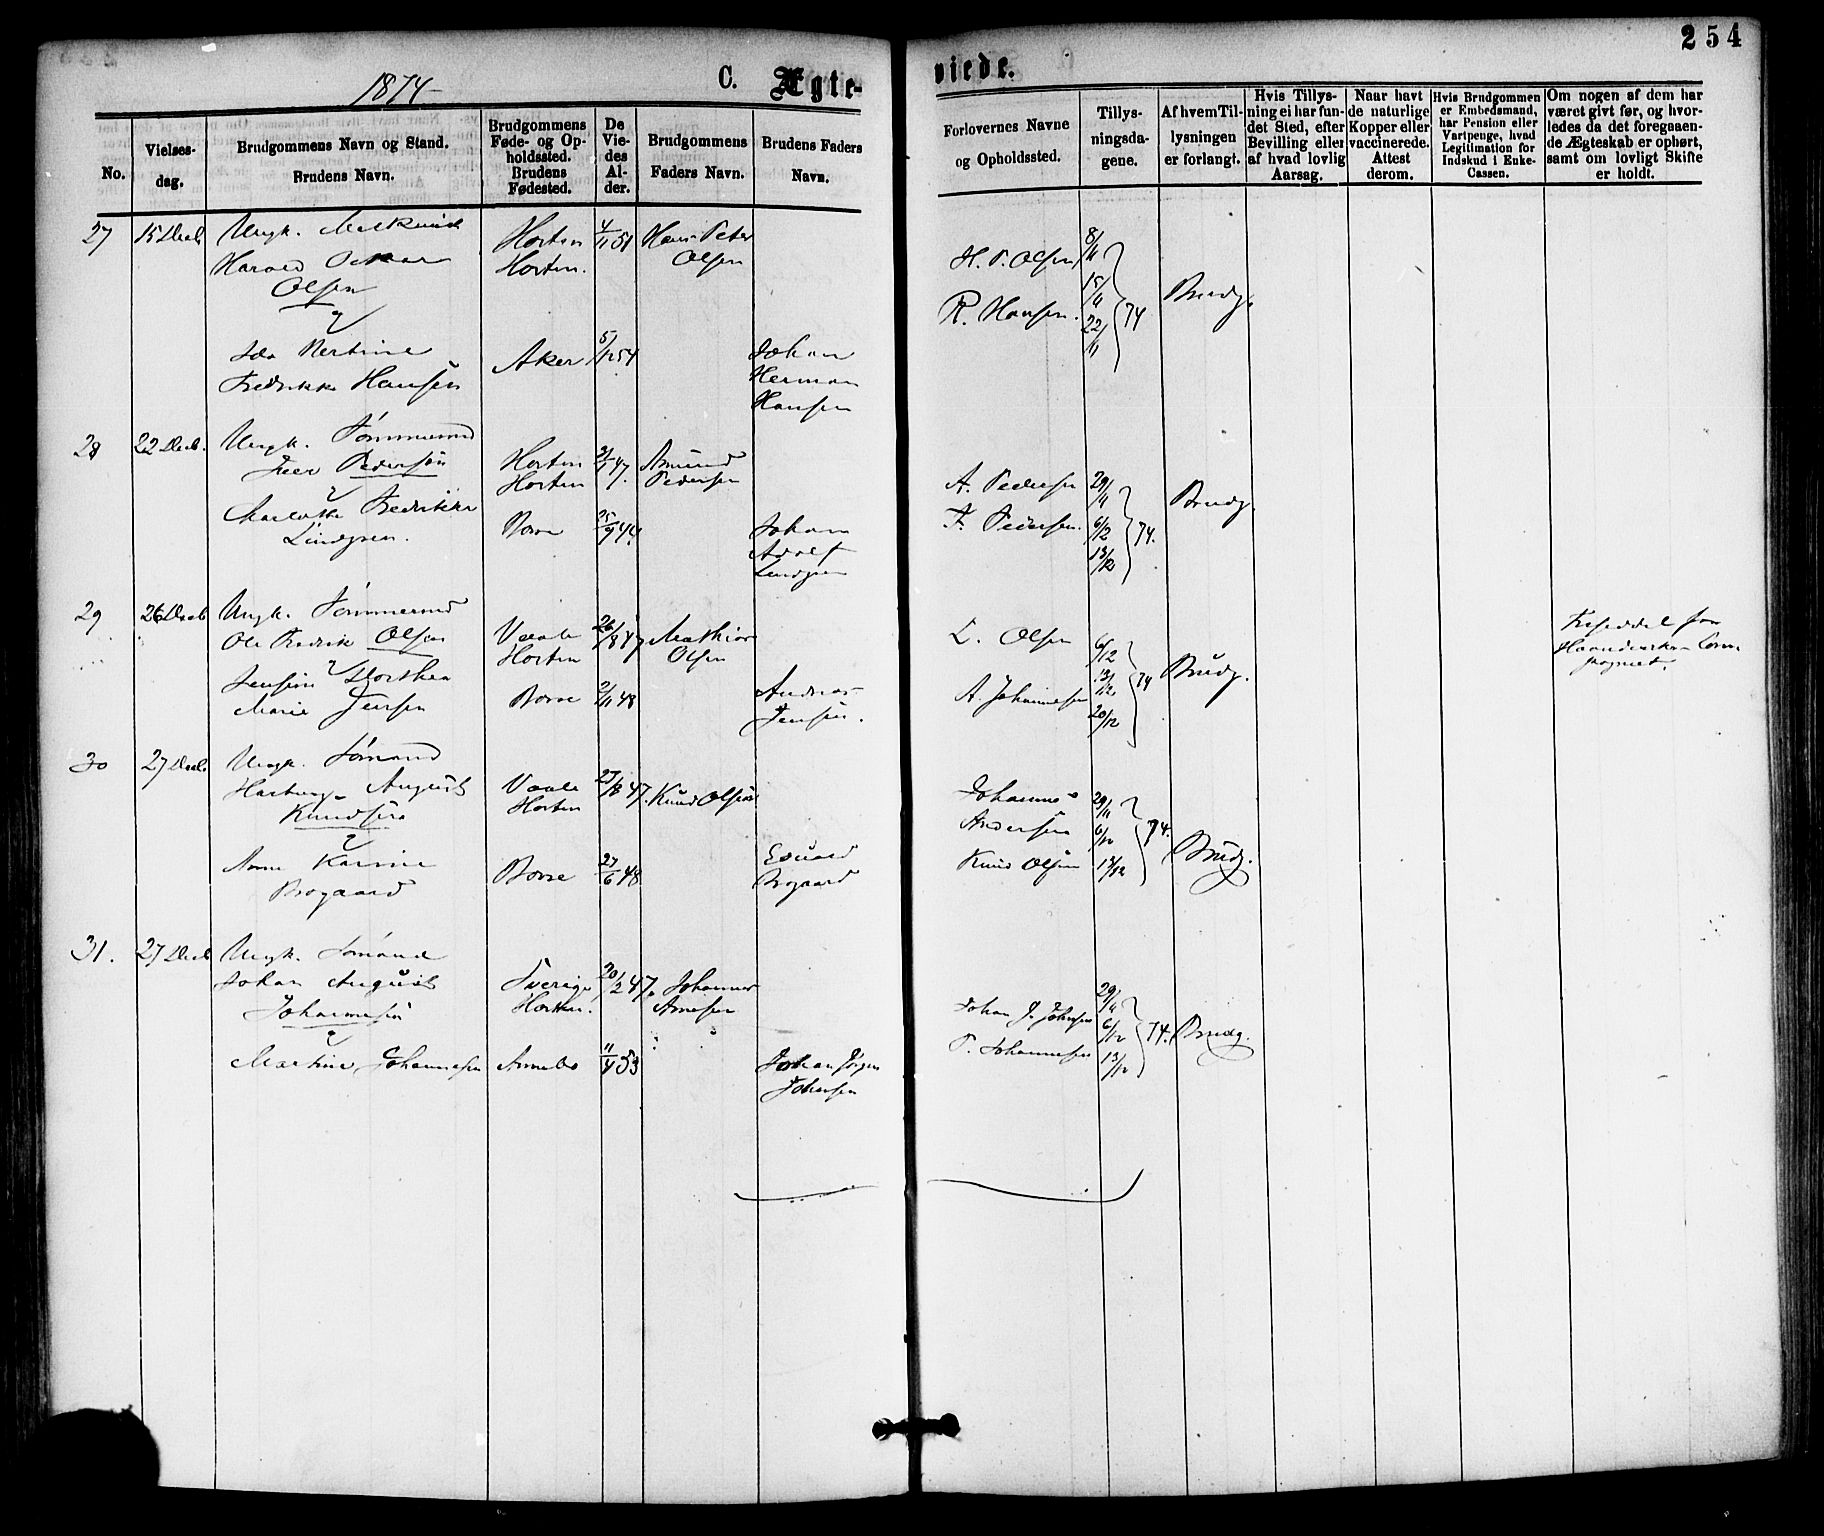 254
1874
C. Ægte-
viede.
No.
Vielses-
dag.
Brudgommens Navn og Stand.
Brudens Navn.
Brudgommens
Føde- og Op-
holdssted.
Brudens
Fødested.
De
Vie-
des
Al-
der.
Brudgommens
Faders Navn.
Brudens Faders
Navn.
Forlovernes Navne
og Opholdssted.
Tillys-
ningsda-
gene.
Af hvem Til-
lysningen
er forlangt.
Hvis Tillys-
ning ei har fun-
det Sted, efter
Bevilling eller
af hvad lovlig
Aarsag.
Naar havt
de naturlige
Kopper eller
vaccinerede.
Attest
derom.
Hvis Brudgommen
er Embedsmand,
har Pension eller
Vartpenge, hvad
Legitimation for
Indskud i Enke-
Cassen.
Om nogen af dem har
været givt før, og hvor-
ledes da det foregaaen-
de Ægteskab er ophørt,
samt om lovligt Skifte
er holdt.
27
15 Decb
Ungk.
Harald Oskar
Olsen
Horten
Horten.
4/11 51
Hans Peter
Olsen
H. P. Olsen
R. Hansen.
8/11
15/11
22/11
74
Brudg.
Fredrikke Hansen
Aker
5/12 54
Johan
Herman
Hansen
28
22 Decb.
Ungk. Tømmermd
Pedersen
Horten
Horten
47.
Amund
Pedersen
A. Pedersen
F. Pedersen.
29/11
6/12
13/12
74.
Brudg.
Charlotte Fredrikke
Lindgren.
Borre
25/9 44.
Johan
Adolf
Lindgren
29
26 Decb
Ungk. Tømmermd
Ole Fredrik Olsen
Vaale
Horten
26/8 47
Mathias
Olsen
L. Olsen
A. Johannesen
6/12
13/12
20/12
74
Brudg.
Dorthea
Marie Jensen
Borre
2/11 48
Andreas
Jensen.
30
27 Decb
Ungk. Sømand
August
Knudsen
Vaale
Horten
27/8 47.
Knud Olsen
Johannes
Andersen
Knud Olsen
29/11
6/12
13/12
74.
Brudg.
Anne Karine
Brogaard
Borre
27/6 48
Edvard
Brogaard
31.
27 Decb
Ungk. Sømand
Johan August
Johannesen
Sverige
Horten.
20/2 47.
Johannes
Arnesen
Johan J. Johnsen
T. Johannesen
29/11
6/12
13/12
74.
Brudg.
Martine Johannesen
Annebo
11/4 53
Johan Jørgen
Johnsen